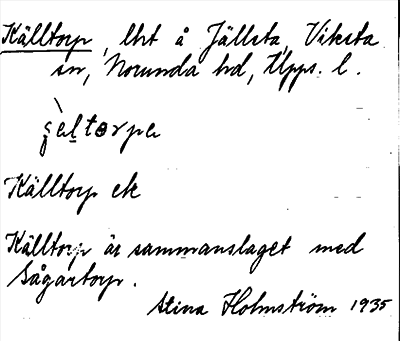 Källtorp, lht å Jällsta, Viksta
sn, Norunda hd, Upps. l.
Källtorp ek
Källtorp är sammanslaget med
Sågartorp.
Stina Holmström 1935